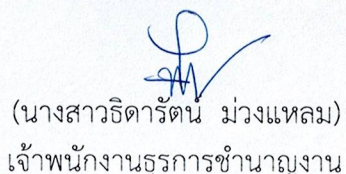 (นางสาวธิดารัตน์  ม่วงแหลม)
เจ้าพนักงานธุรการชำนาญงาน